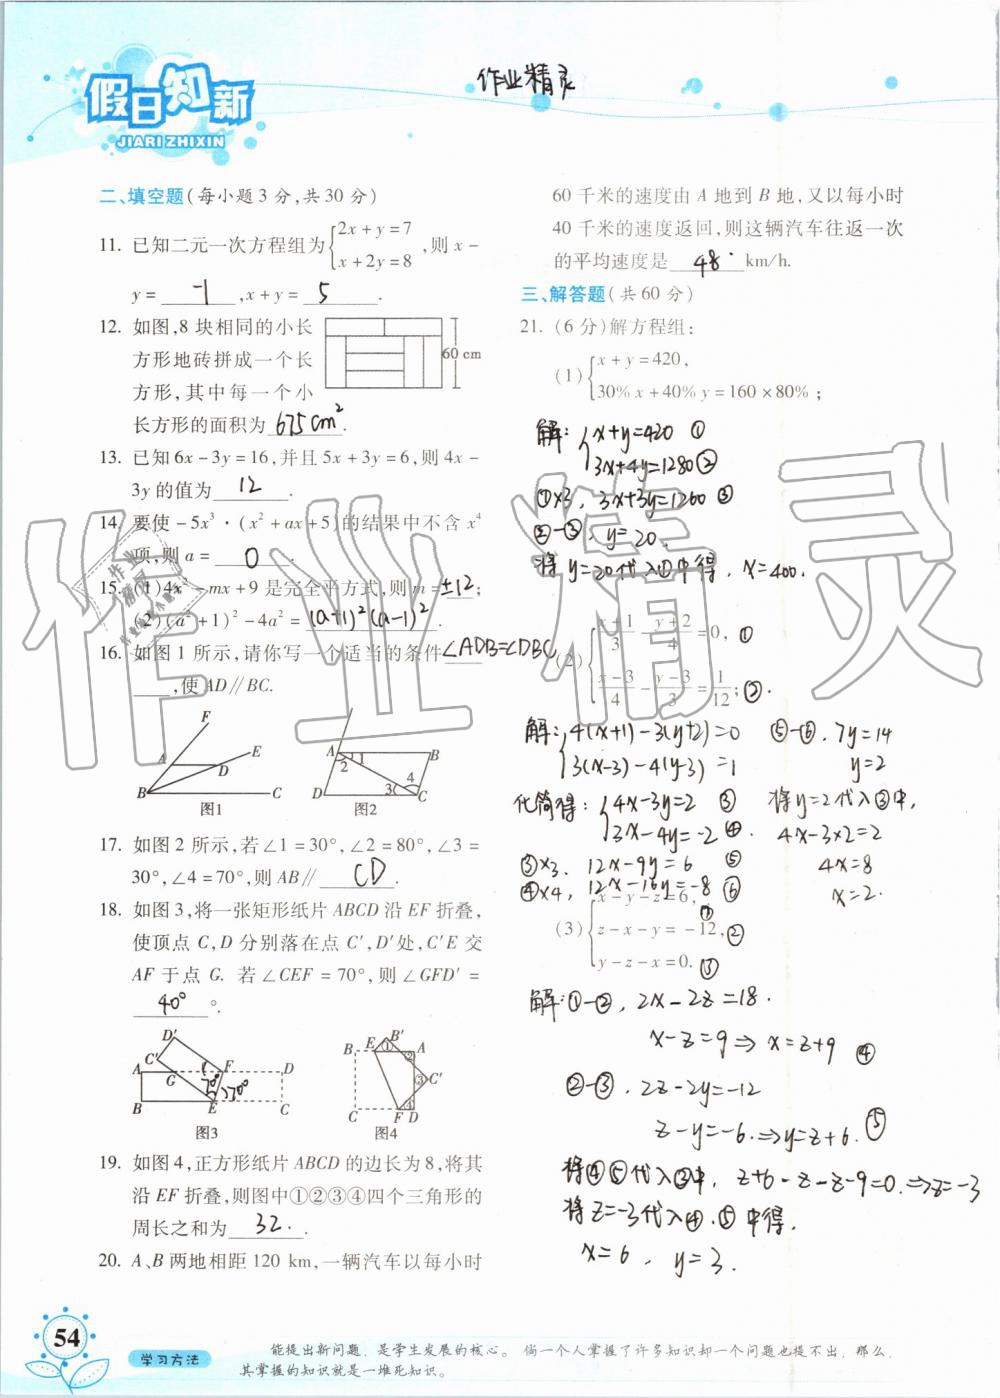 假日知新
JIARI ZHIXIN
作业精灵
二、填空题(每小题3分,共30分)
11. 已知二元一次方程组为{2x+y=7
x+2y=8,则x-
y= -1 ,x+y= 5 .
12. 如图,8块相同的小长
方形地砖拼成一个长
方形,其中每一个小
长方形的面积为 675cm² .
60 cm
13. 已知6x-3y=16,并且5x+3y=6,则4x-
3y的值为 12 .
14. 要使-5x³·(x²+ax+5)的结果中不含x⁴
项,则a= 0 .
15. (1)4x²-mx+9是完全平方式,则m=±12;
(2)(a²+1)²-4a²=(a+1)²(a-1)².
16. 如图1所示,请你写一个适当的条件∠ADB=∠DBC
,使AD∥BC.
F
A
D
E
B
C
图1
A
B
2
1
4
3
D
C
图2
17. 如图2所示,若∠1=30°,∠2=80°,∠3=
30°,∠4=70°,则AB∥ CD .
18. 如图3,将一张矩形纸片ABCD沿EF折叠,
使顶点C,D分别落在点C′,D′处,C′E交
AF于点G. 若∠CEF=70°,则∠GFD′=
40° °.
D′
C′
A
G
F
D
70°
270°
B
E
C
图3
B′
B
E
①
A
②
③
C′
C
F
④
D
图4
19. 如图4,正方形纸片ABCD的边长为8,将其
沿EF折叠,则图中①②③④四个三角形的
周长之和为 32. .
20. A、B两地相距120 km,一辆汽车以每小时
60千米的速度由A地到B地,又以每小时
40千米的速度返回,则这辆汽车往返一次
的平均速度是 48. km/h.
三、解答题(共60分)
21. (6分)解方程组:
(1){x+y=420,
30%x+40%y=160×80%;
解:{x+y=420 ①
3x+4y=1280②
①×3, 3x+3y=1260 ③
②-③, y=20.
将y=20代入①中得, x=400.
(2){(x+1)/3-(y+2)/4=0, ①
(x-3)/4-(y-3)/3=1/12; ②.
解:{4(x+1)-3(y+2)=0
3(x-3)-4(y-3)=1
化简得:{4x-3y=2 ③
3x-4y=-2 ④.
③×3, 12x-9y=6 ⑤
④×4, 12x-16y=-8 ⑥
⑤-⑥. 7y=14
y=2
将y=2代入③中,
4x-3×2=2
4x=8
x=2.
(3){x-y-z=6, ①
z-x-y=-12, ②
y-z-x=0. ③
解:①-②, 2x-2z=18.
x-z=9⇒x=z+9 ④
②-③, 2z-2y=-12
z-y=-6.⇒y=z+6. ⑤
将④⑤代入③中, z+6-z-z-9=0.⇒z=-3
将z=-3代入④.⑤中得.
x=6, y=3.
54
学习方法
能提出新问题,是学生发展的核心。倘一个人掌握了许多知识却一个问题也提不出,那么,
其掌握的知识就是一堆死知识。
作业精灵